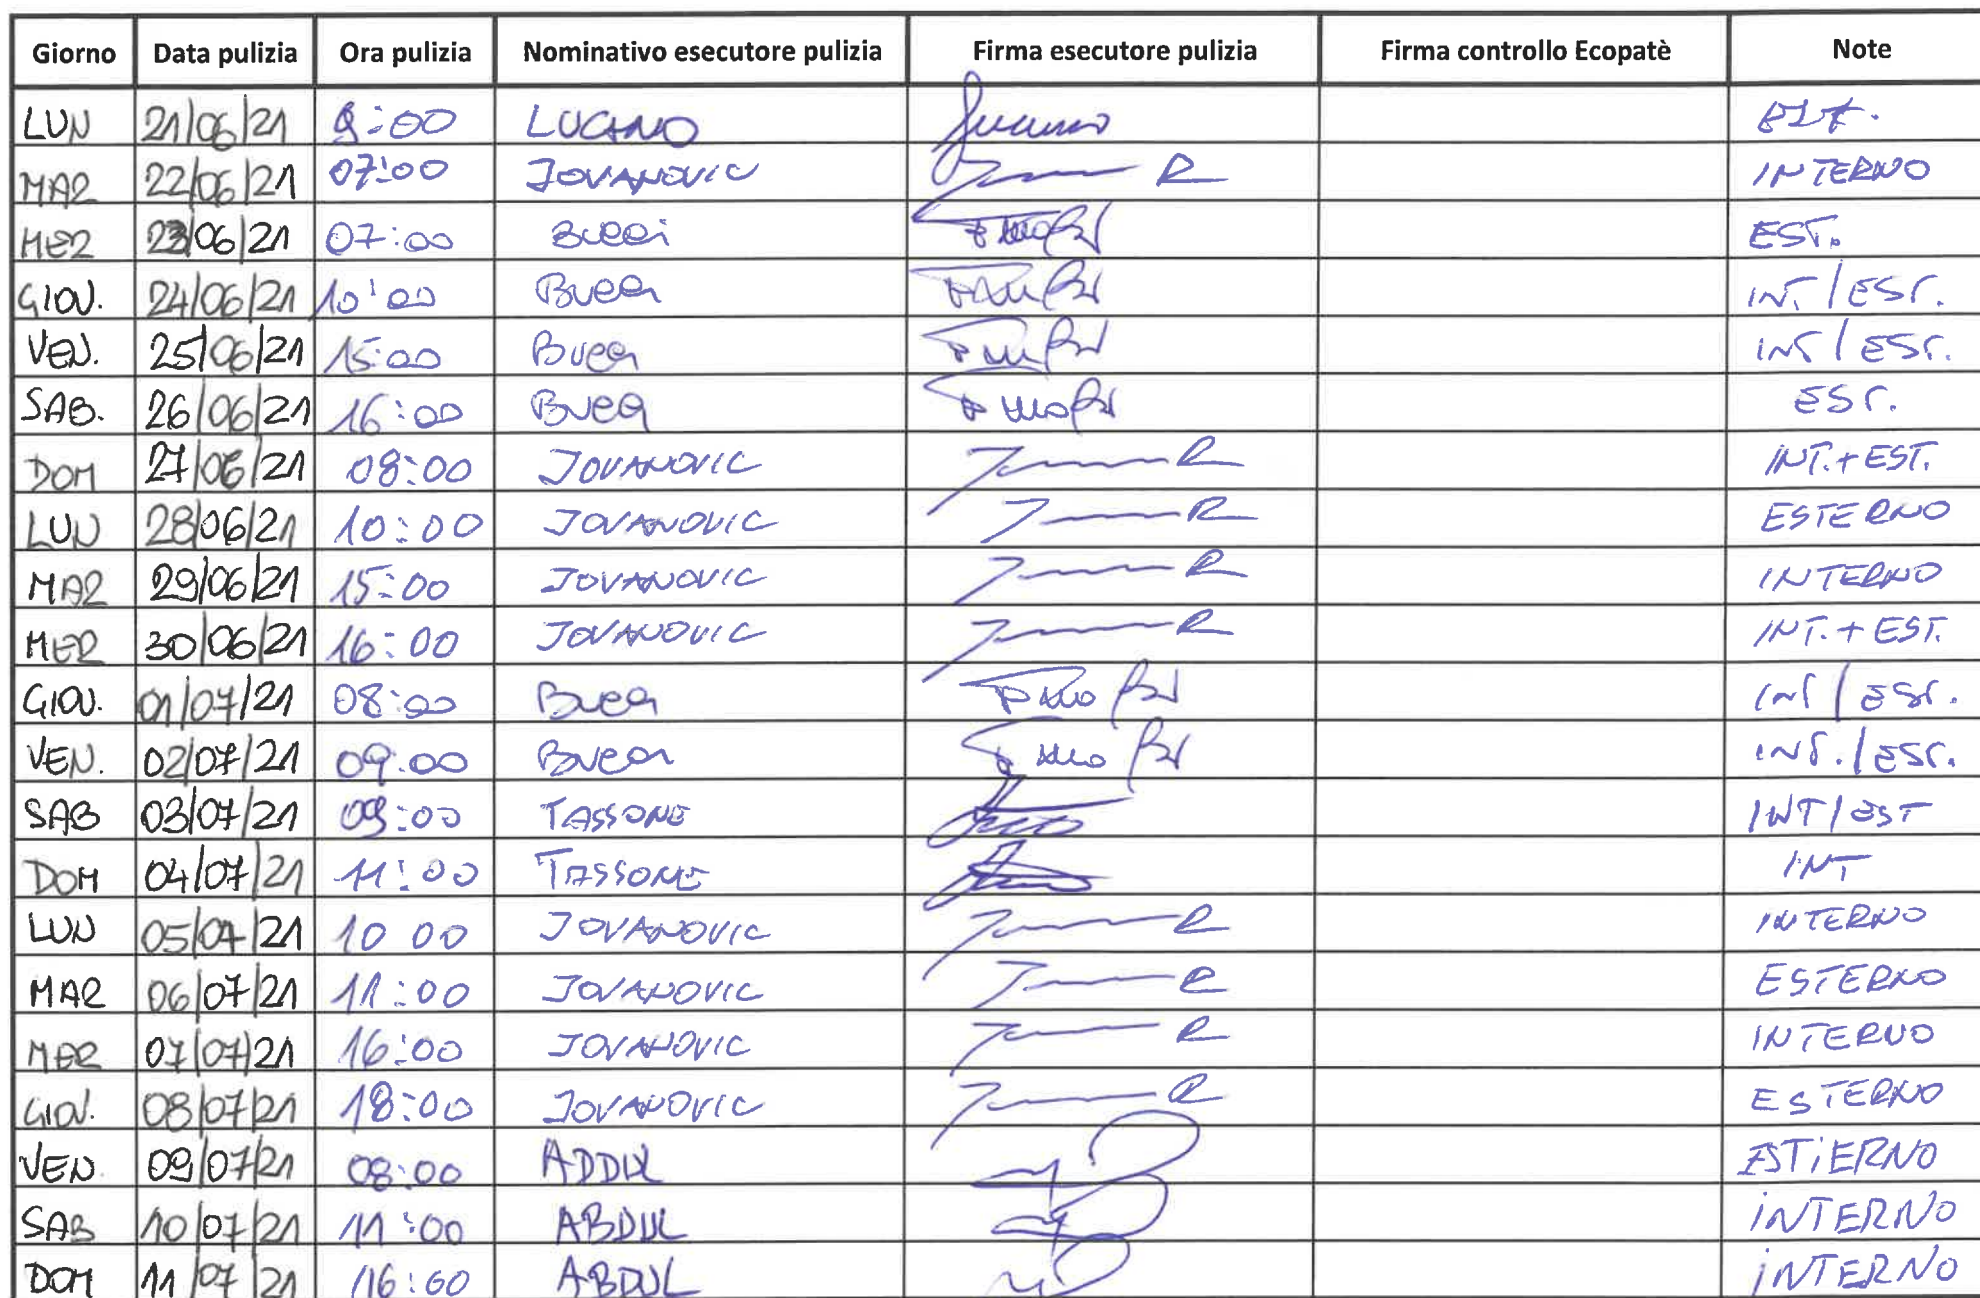 Giorno Data pulizia Ora pulizia Nominativo esecutore pulizia Firma esecutore pulizia Firma controllo Ecopatè Note
LUN 21/06/21 9:00 LUCANO
MAR 22/06/21 07:00 JOVANOVIC INTERNO
MER 23/06/21 07:00 Bucci EST.
GIOV. 24/06/21 10:00 Bucci INT./EST.
VEN. 25/06/21 15:00 Bucci INT/EST.
SAB. 26/06/21 16:00 Bucci EST.
DOM 27/06/21 08:00 JOVANOVIC INT.+EST.
LUN 28/06/21 10:00 JOVANOVIC ESTERNO
MAR 29/06/21 15:00 JOVANOVIC INTERNO
MER 30/06/21 16:00 JOVANOVIC INT.+EST.
GIOV. 01/07/21 08:00 Bucci INT/EST.
VEN. 02/07/21 09:00 Bucci INT./EST.
SAB 03/07/21 09:00 TASSONE INT/EST
DOM 04/07/21 11:00 TASSONE INT
LUN 05/07/21 10 00 JOVANOVIC INTERNO
MAR 06/07/21 11:00 JOVANOVIC ESTERNO
MER 07/07/21 16:00 JOVANOVIC INTERNO
GIOV. 08/07/21 18:00 JOVANOVIC ESTERNO
VEN. 09/07/21 08:00 ADDUL ESTIERNO
SAB 10/07/21 11:00 ABDUL INTERNO
DOM 11/07/21 16:00 ABDUL INTERNO